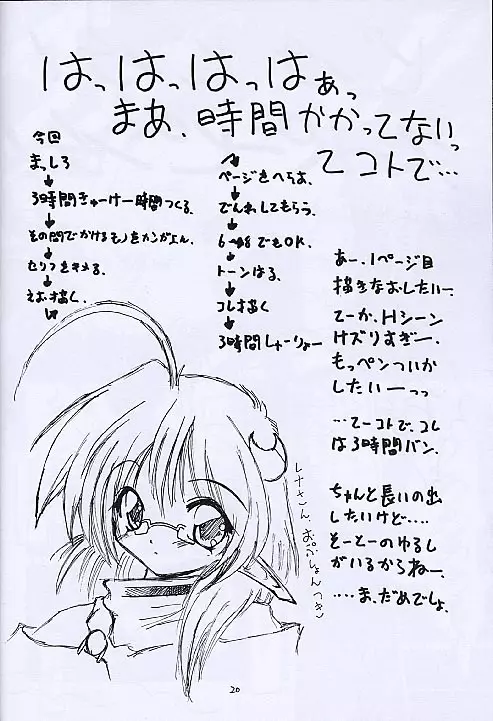 はっはっはっはぁっ
まあ、時間かかってないっ
てコトで…
今回
まっしろ
↓
3時間きゅーけー時間つくる。
↓
その間でかけるモノをカンがえん。
↓
せりフをきめる。
↓
えを描く。
ページをへらす。
↓
でんわしてもらう。
↓
6〜8でもOK。
↓
トーンはる。
↓
コレを描く
↓
3時間しゅーりょー
あー、1ページ目
描きなおしたいー。
てーか、Hシーン
ケズりすぎー。
もっペンついか
したいーっっ
…てーコトで、コレ
は3時間バン。
ちゃんと長いの出
したいけど…。
そーとーのゆるし
がいるからねー。
…ま、だめでしょ。
レナさん、おぷしょんつき
20